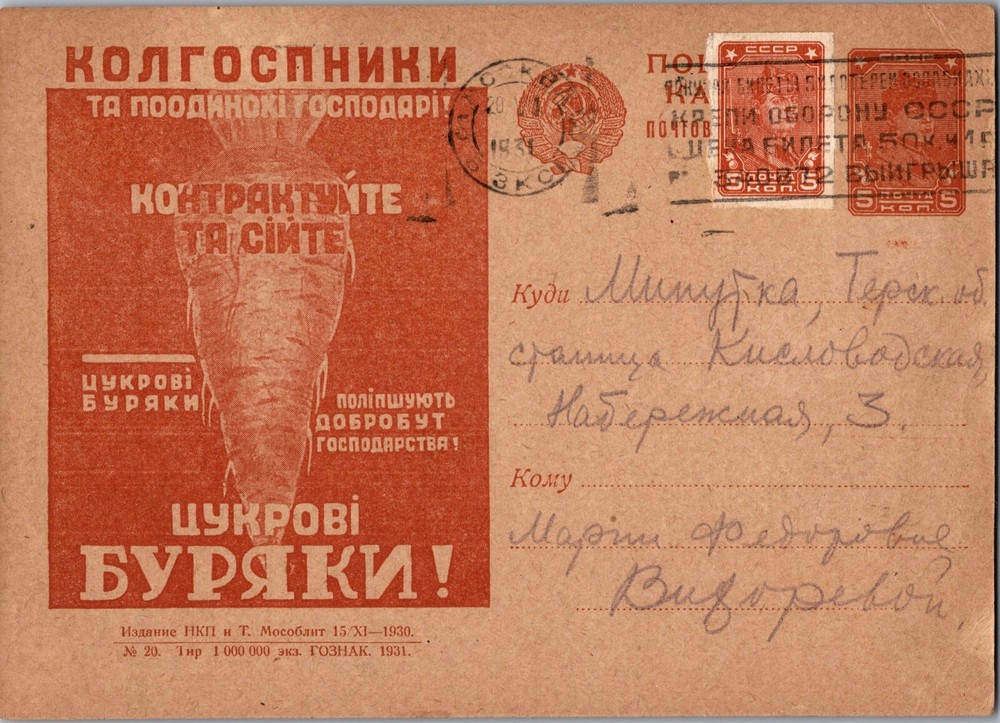 КОЛГОСПНИКИ
ТА ПООДИНОКІ ГОСПОДАРІ!
КОНТРАКТУЙТЕ
ТА СІЙТЕ
ЦУКРОВІ
БУРЯКИ
ПОЛІПШУЮТЬ
ДОБРОБУТ
ГОСПОДАРСТВА!
ЦУКРОВІ
БУРЯКИ!
Издание НКП и Т. Мособлит 15/XI—1930.
№ 20. Тир 1 000 000 экз. ГОЗНАК. 1931.
1931
КРЕПИ ОБОРОНУ СССР
ЦЕНА БИЛЕТА 50К.
ВЫИГРЫША
СССР
ПОЧТА
5 КОП. 5
СССР
ПОЧТА
5 КОП. 5
Куди Минутка, Терск. об.
станица Кисловодская,
Набережная, 3.
Кому
Марии Федоровне